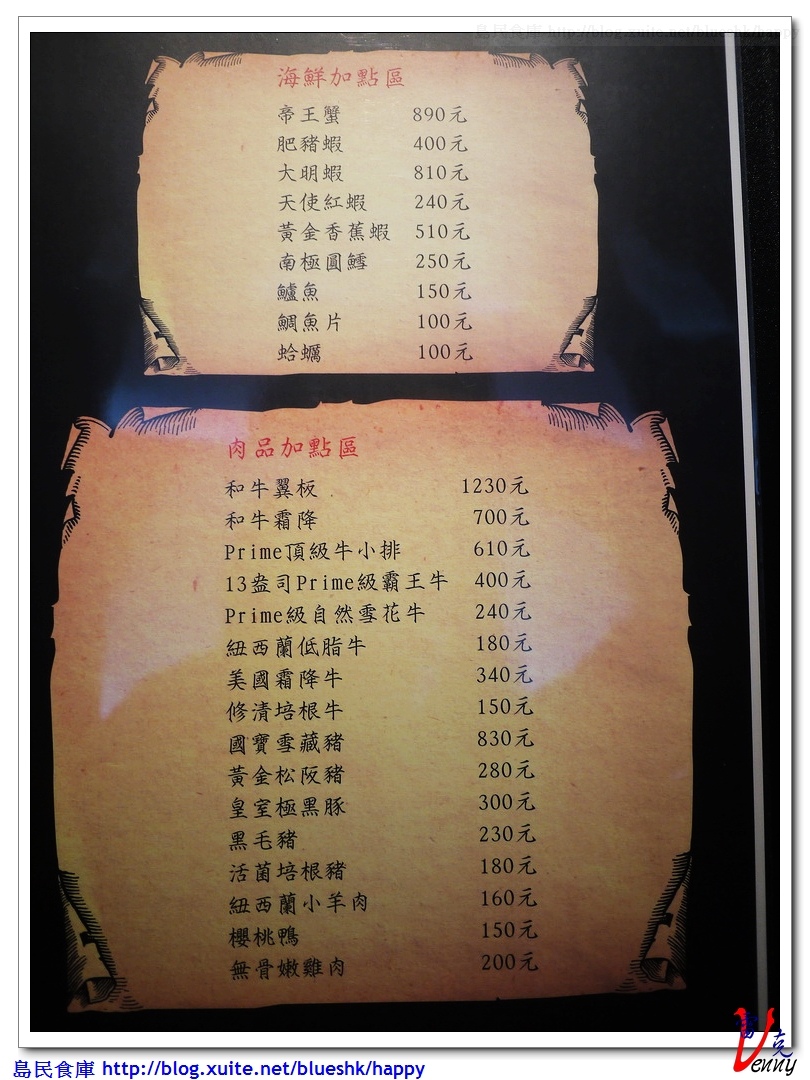 島民食庫 http://blog.xuite.net/blueshk/happy
海鮮加點區
帝王蟹 890元
肥豬蝦 400元
大明蝦 810元
天使紅蝦 240元
黃金香蕉蝦 510元
南極圓鱈 250元
鱸魚 150元
鯛魚片 100元
蛤蠣 100元
肉品加點區
和牛翼板 1230元
和牛霜降 700元
Prime頂級牛小排 610元
13盎司Prime級霸王牛 400元
Prime級自然雪花牛 240元
紐西蘭低脂牛 180元
美國霜降牛 340元
修清培根牛 150元
國寶雪藏豬 830元
黃金松阪豬 280元
皇室極黑豚 300元
黑毛豬 230元
活菌培根豬 180元
紐西蘭小羊肉 160元
櫻桃鴨 150元
無骨嫩雞肉 200元
島民食庫 http://blog.xuite.net/blueshk/happy
Venny